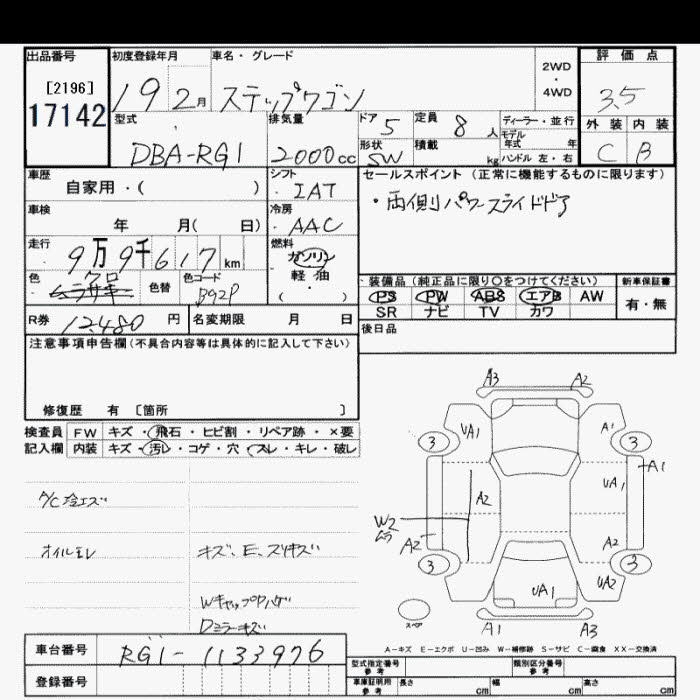 出品番号
[2196]
17142
初度登録年月
19 2月
車名・グレード
ステップワゴン
2WD
・
4WD
評価点
3.5
外装 内装
C B
型式
DBA-RG1
排気量
2000cc
ドア 5
形状 SW
定員 8人
積載 kg
ディーラー・並行
モデル年式 年
ハンドル 左・右
車歴
自家用・( )
シフト
IAT
セールスポイント(正常に機能するものに限ります)
・両側パワースライドドア
車検
年 月( 日)
冷房
AAC
走行
9万9千617km
燃料
ガソリン
・軽・油
・( )
色
ムラサキ
クロ
色替
色コード
B92P
装備品(純正品に限り○をつけてください)
PS PW ABS エアB AW
SR ナビ TV カワ
新車保証書
有・無
R券 12,480円
名変期限 月 日
後日品
注意事項申告欄(不具合内容等は具体的に記入して下さい)
修復歴 有 〔箇所 〕
検査員記入欄
FW キズ・飛石・ヒビ割・リペア跡・×要
内装 キズ・汚レ・コゲ・穴・スレ・キレ・破レ
A/C冷エズ
オイルモレ
キズ、E、スリキズ
WキャップPハゲ
Dミラーキズ
A3 A2
UA1 A1
3 3
A1
A2 UA1
W2
ムラ
A2 A2
3 3
UA1 UA2
スペア
A1 A3
A-キズ E-エクボ U-凹み W-補修跡 S-サビ C-腐食 XX-交換済
車台番号
RG1-1133976
登録番号
型式指定番号 参考
類別区分番号 参考
車庫証明用 参考
長さ cm 幅 cm 高さ cm